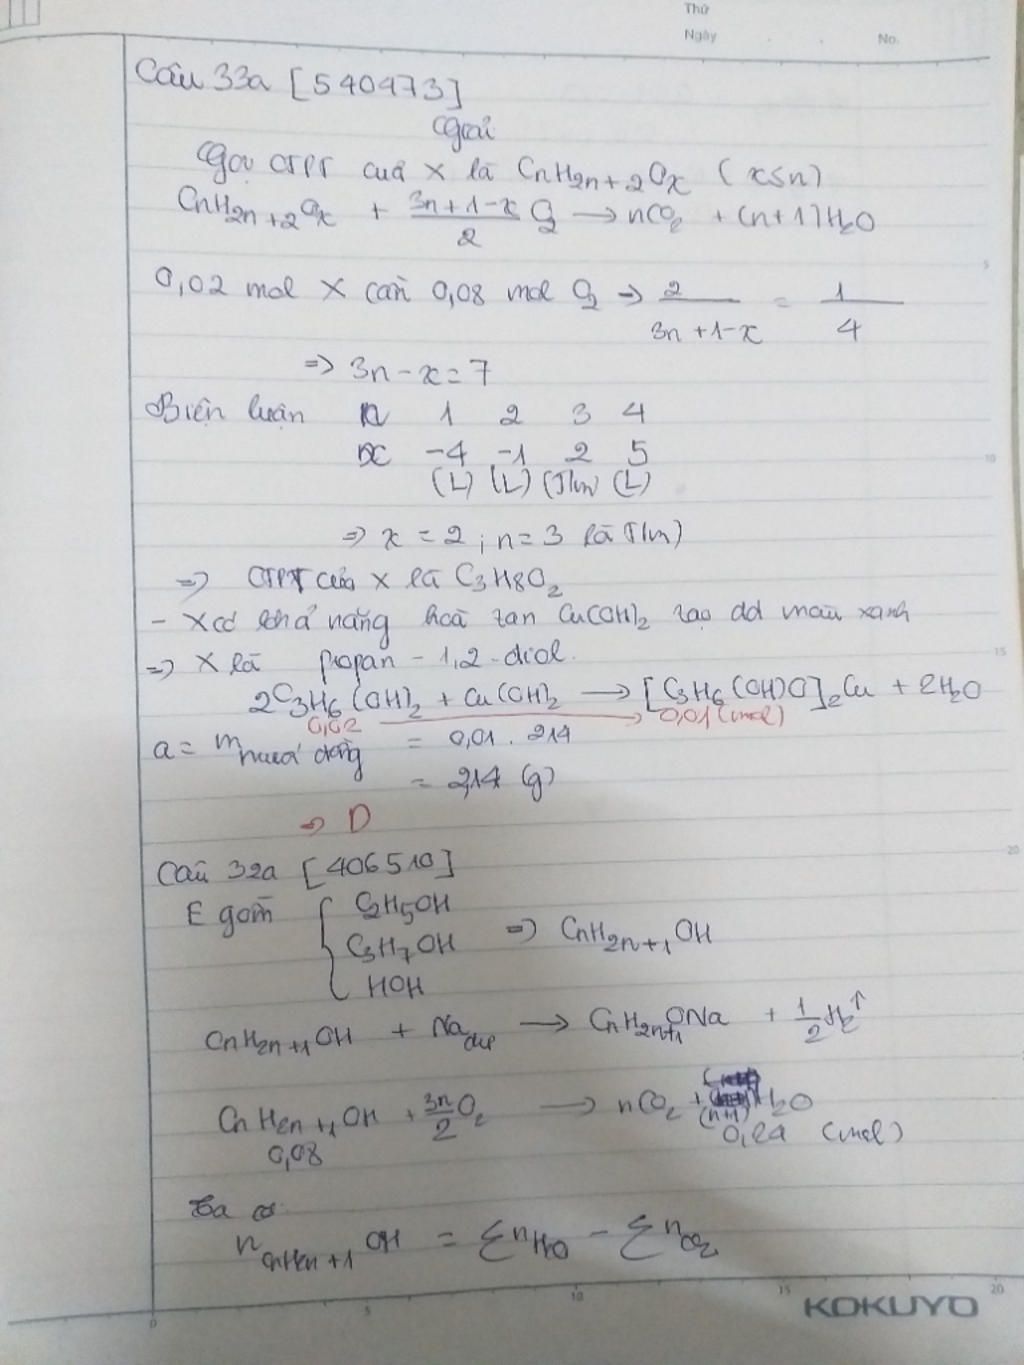 Thứ
Ngày . . No.
Câu 33a [540473]
Giải
Gọi CTPT của X là CnH2n+2Ox (x≤n)
CnH2n+2Ox + (3n+1-x)/2 O2 → nCO2 + (n+1)H2O
0,02 mol X cần 0,08 mol O2 => 2/(3n+1-x) = 1/4
=> 3n-x=7
Biện luận n 1 2 3 4
x -4 -1 2 5
(L) (L) (T/m) (L)
=> x = 2 ; n = 3 là T/m)
=> CTPT của X là C3H8O2
- X có khả năng hoà tan Cu(OH)2 tạo dd màu xanh
=> X là propan-1,2-diol.
2C3H6(OH)2 + Cu(OH)2 → [C3H6(OH)O]2Cu + 2H2O
0,02 → 0,01 (mol)
a = m muối đồng = 0,01 . 214
= 2,14 (g)
=> D
Câu 32a [406510]
E gồm { C2H5OH
C3H7OH => CnH2n+1OH
HOH
CnH2n+1OH + Na dư → CnH2n+1ONa + 1/2 H2↑
CnH2n+1OH + 3n/2 O2 → nCO2 + (n+1)H2O
0,08 0,24 (mol)
Ta có
nCnH2n+1OH = ΣnH2O - ΣnCO2
KOKUYO
0 5 10 15 20